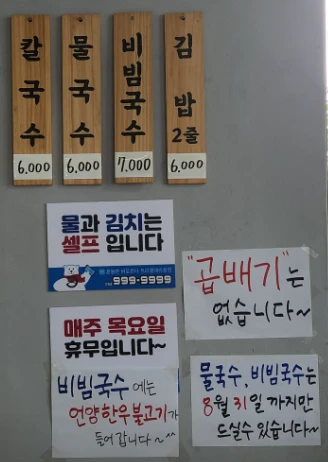 칼국수
6.000
물국수
6.000
비빔국수
7.000
김밥
2줄
6.000
물과 김치는
셀프 입니다
999-9999
매주 목요일
휴무입니다~
비빔국수에는
언양한우불고기가
들어갑니다~^^
"곱배기"는
없습니다~
물국수, 비빔국수는
8월 31일 까지만
드실수 있습니다~